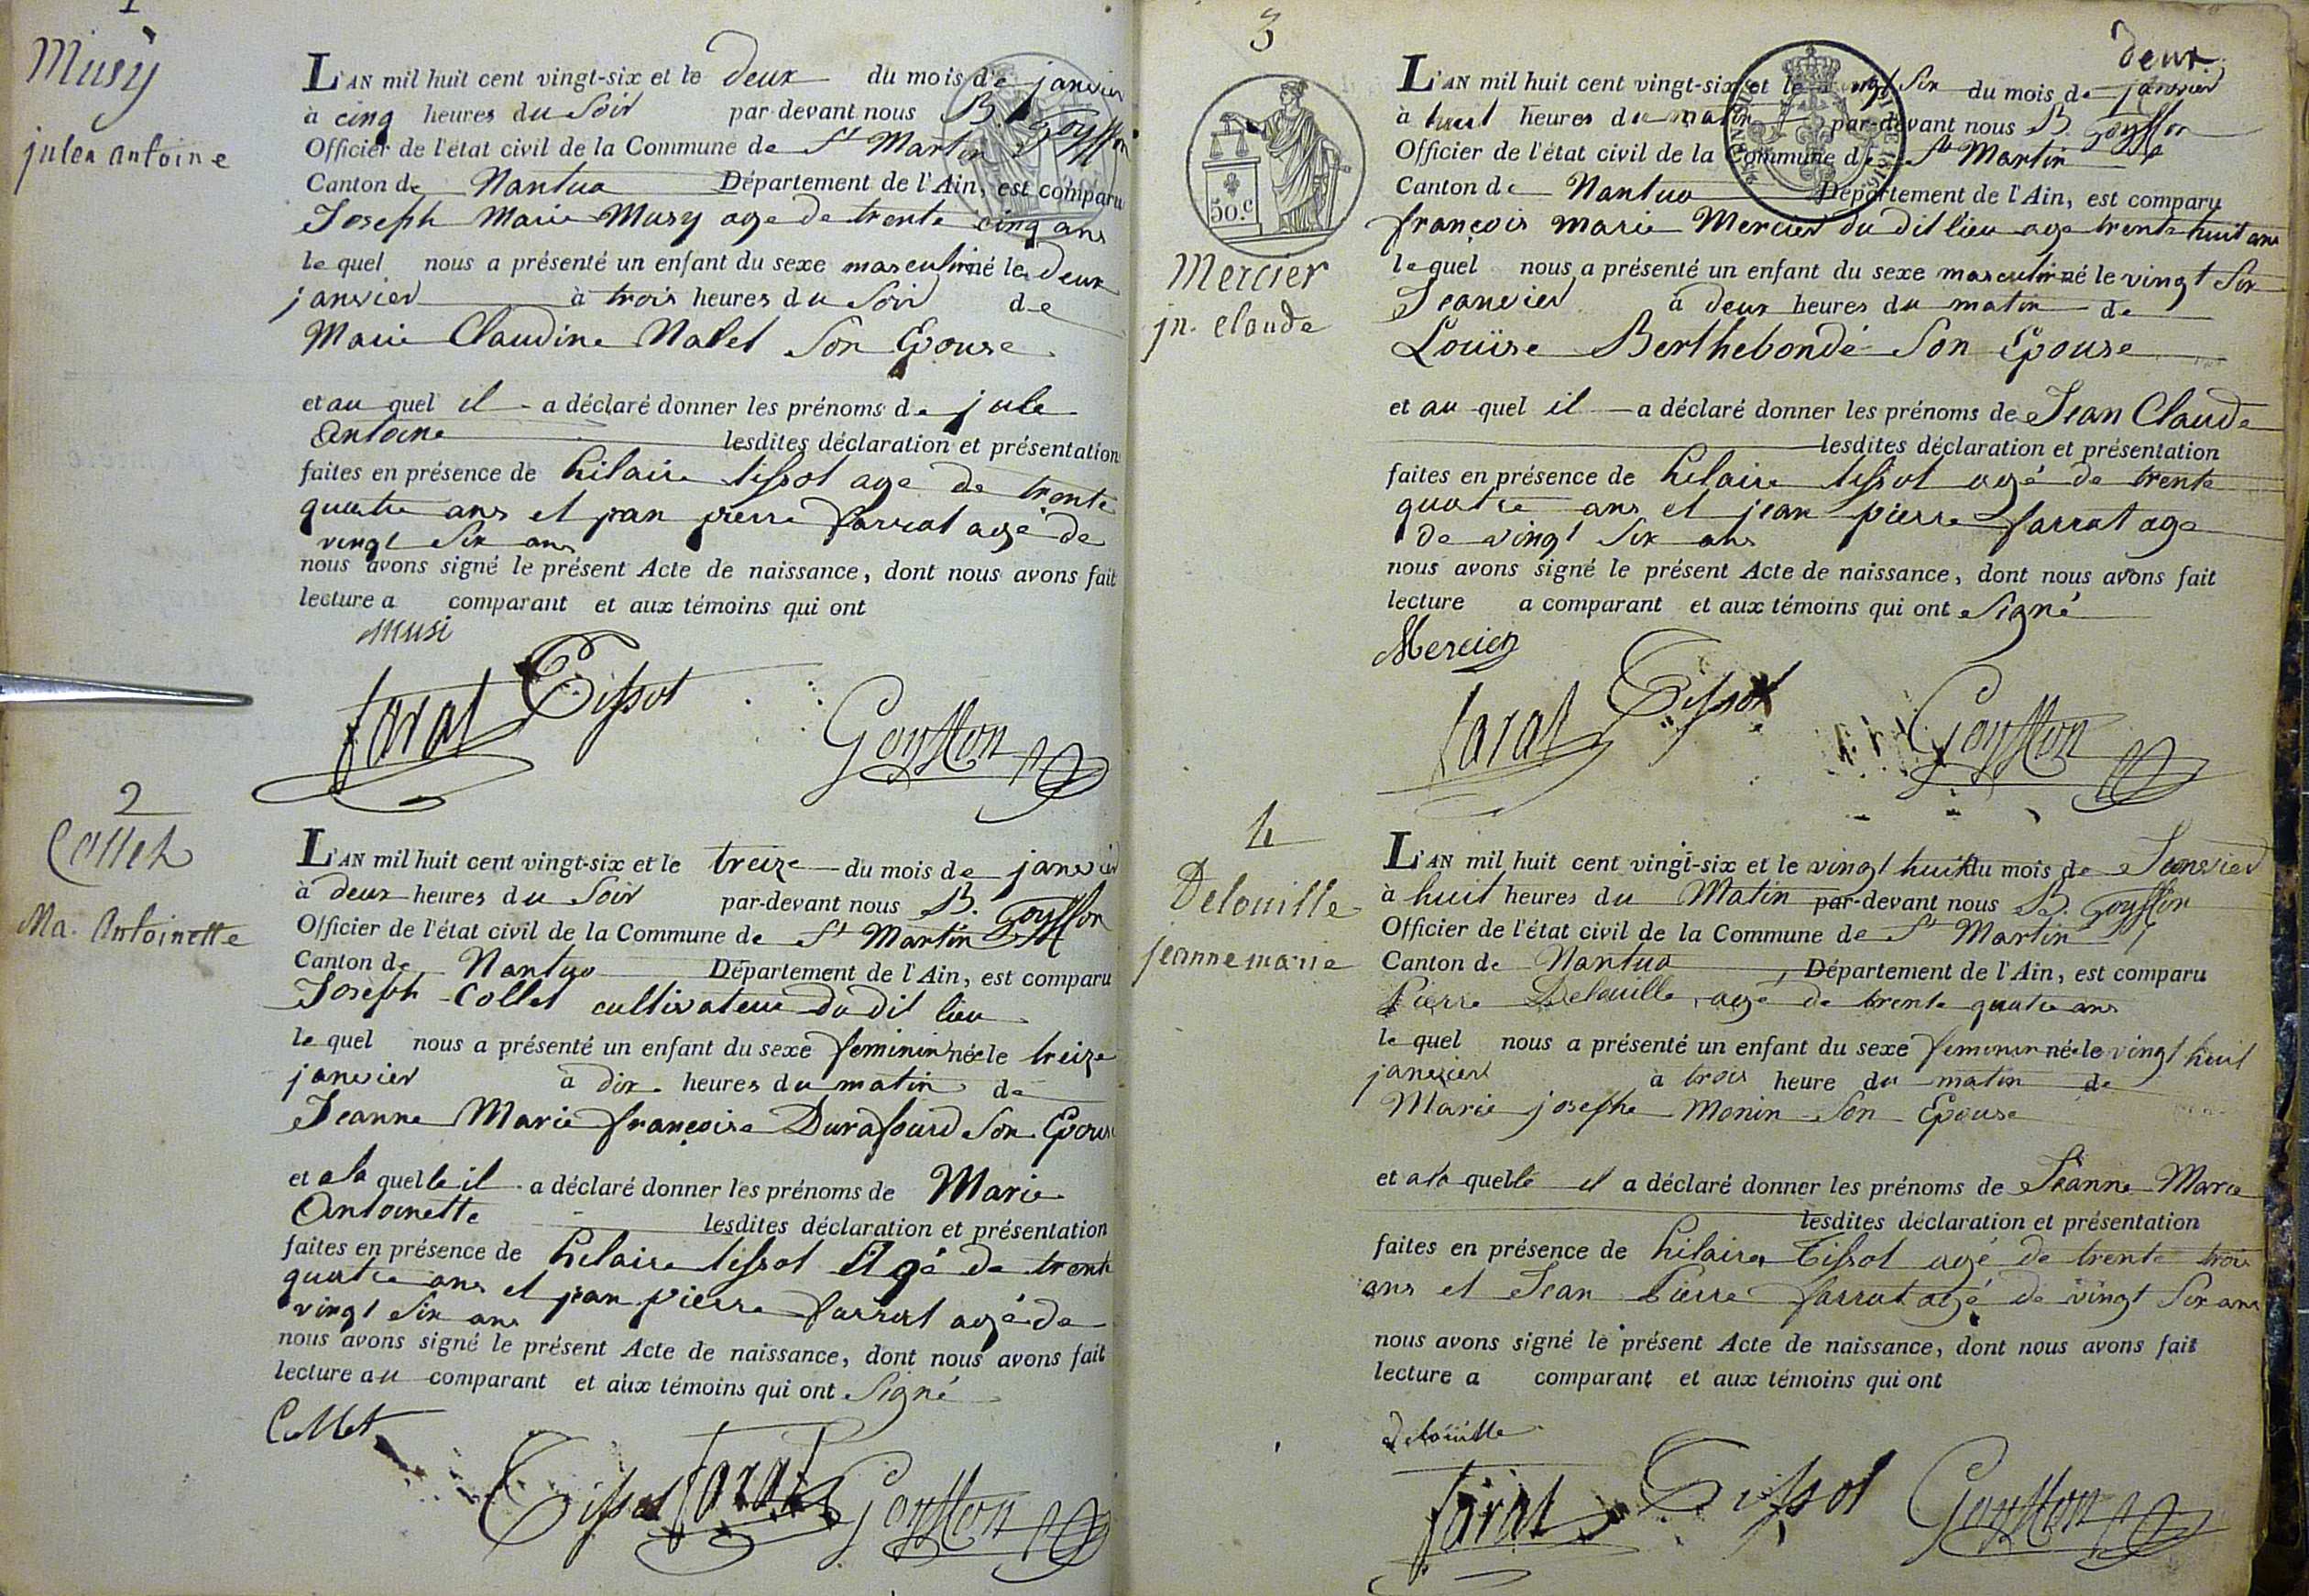 1
Musÿ
jules antoine
L'AN mil huit cent vingt-six et le deux du mois de janvier
à cinq heures du soir par-devant nous B. Goyffon
Officier de l'état civil de la Commune de St Martin
Canton de Nantua Département de l'Ain, est comparu
Joseph Marie Musy age de trente cinq ans
le quel nous a présenté un enfant du sexe masculin né le deux
janvier à trois heures du soir de
Marie Claudine Nalet son Epouse
et au quel il a déclaré donner les prénoms de jule
Antoine lesdites déclaration et présentation
faites en présence de hilaire tissot age de trente
quatre ans et jean pierre farrat agé de
vingt six ans
nous avons signé le présent Acte de naissance, dont nous avons fait
lecture a comparant et aux témoins qui ont
Musi
farat Tissot Goyffon
2
Collet
Ma. Antoinette
L'AN mil huit cent vingt-six et le treize du mois de janvier
à deux heures du soir par-devant nous B. Goyffon
Officier de l'état civil de la Commune de St Martin
Canton de Nantua Département de l'Ain, est comparu
Joseph Collet cultivateur du dit lieu
le quel nous a présenté un enfant du sexe feminin née le treize
janvier à dix heures du matin de
Jeanne Marie françoise Durafourd son Epouse
et a la quelle il a déclaré donner les prénoms de Marie
Antoinette lesdites déclaration et présentation
faites en présence de hilaire tissot agé de trente
quatre ans et jean pierre farrat agé de
vingt six ans
nous avons signé le présent Acte de naissance, dont nous avons fait
lecture au comparant et aux témoins qui ont signé
Collet
Tissot farat Goyffon
deux
3
50.c
Mercier
jn. claude
L'AN mil huit cent vingt-six et le vingt six du mois de janvier
à huit heures du matin par-devant nous B. Goyffon
Officier de l'état civil de la Commune de St Martin
Canton de Nantua Département de l'Ain, est comparu
françois marie Mercier du dit lieu age trente huit ans
le quel nous a présenté un enfant du sexe masculin né le vingt six
Jeanvier à deux heures du matin de
Louïse Berthebondé son Epouse
et au quel il a déclaré donner les prénoms de Jean Claude
lesdites déclaration et présentation
faites en présence de hilaire tissot agé de trente
quatre ans et jean pierre farrat age
de vingt six ans
nous avons signé le présent Acte de naissance, dont nous avons fait
lecture a comparant et aux témoins qui ont signé
Mercier
farat Tissot Goyffon
4
Delouille
jeanne marie
L'AN mil huit cent vingt-six et le vingt huit du mois de Janvier
à huit heures du Matin par-devant nous B. Goyffon
Officier de l'état civil de la Commune de St Martin
Canton de Nantua, Département de l'Ain, est comparu
Pierre Delouille, agé de trente quatre ans
le quel nous a présenté un enfant du sexe feminin née le vingt huit
janvier à trois heure du matin de
Marie josephe Monin son Epouse
et a la quelle il a déclaré donner les prénoms de Jeanne Marie
lesdites déclaration et présentation
faites en présence de hilaire Tissot agé de trente trois
ans et Jean Pierre farrat agé de vingt six ans
nous avons signé le présent Acte de naissance, dont nous avons fait
lecture a comparant et aux témoins qui ont
delouille
farat Tissot Goyffon